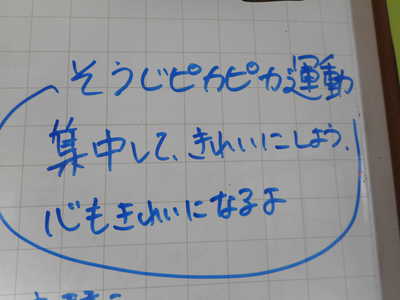 そうじピカピカ運動
集中して、きれいにしよう。
心もきれいになるよ